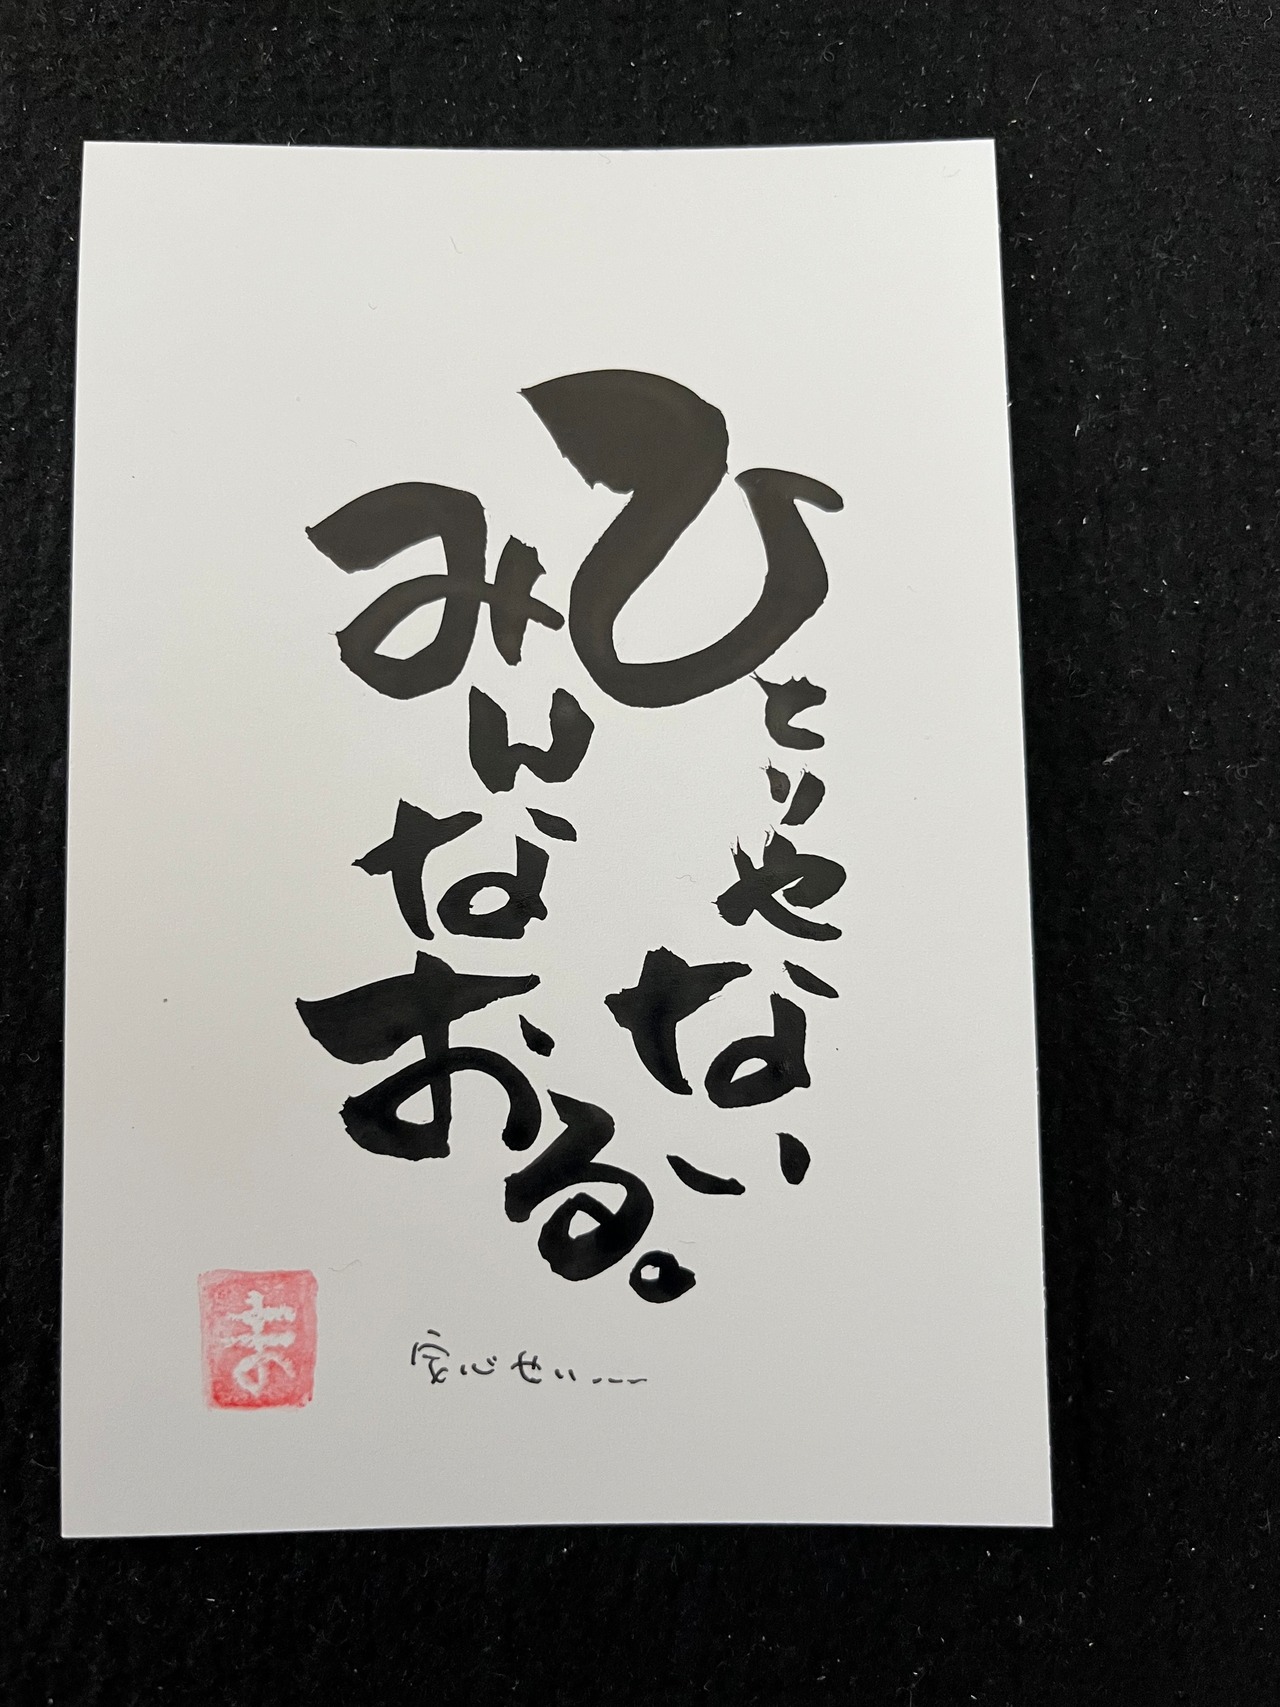 ひとりやない
みんなおる。
安心せい...